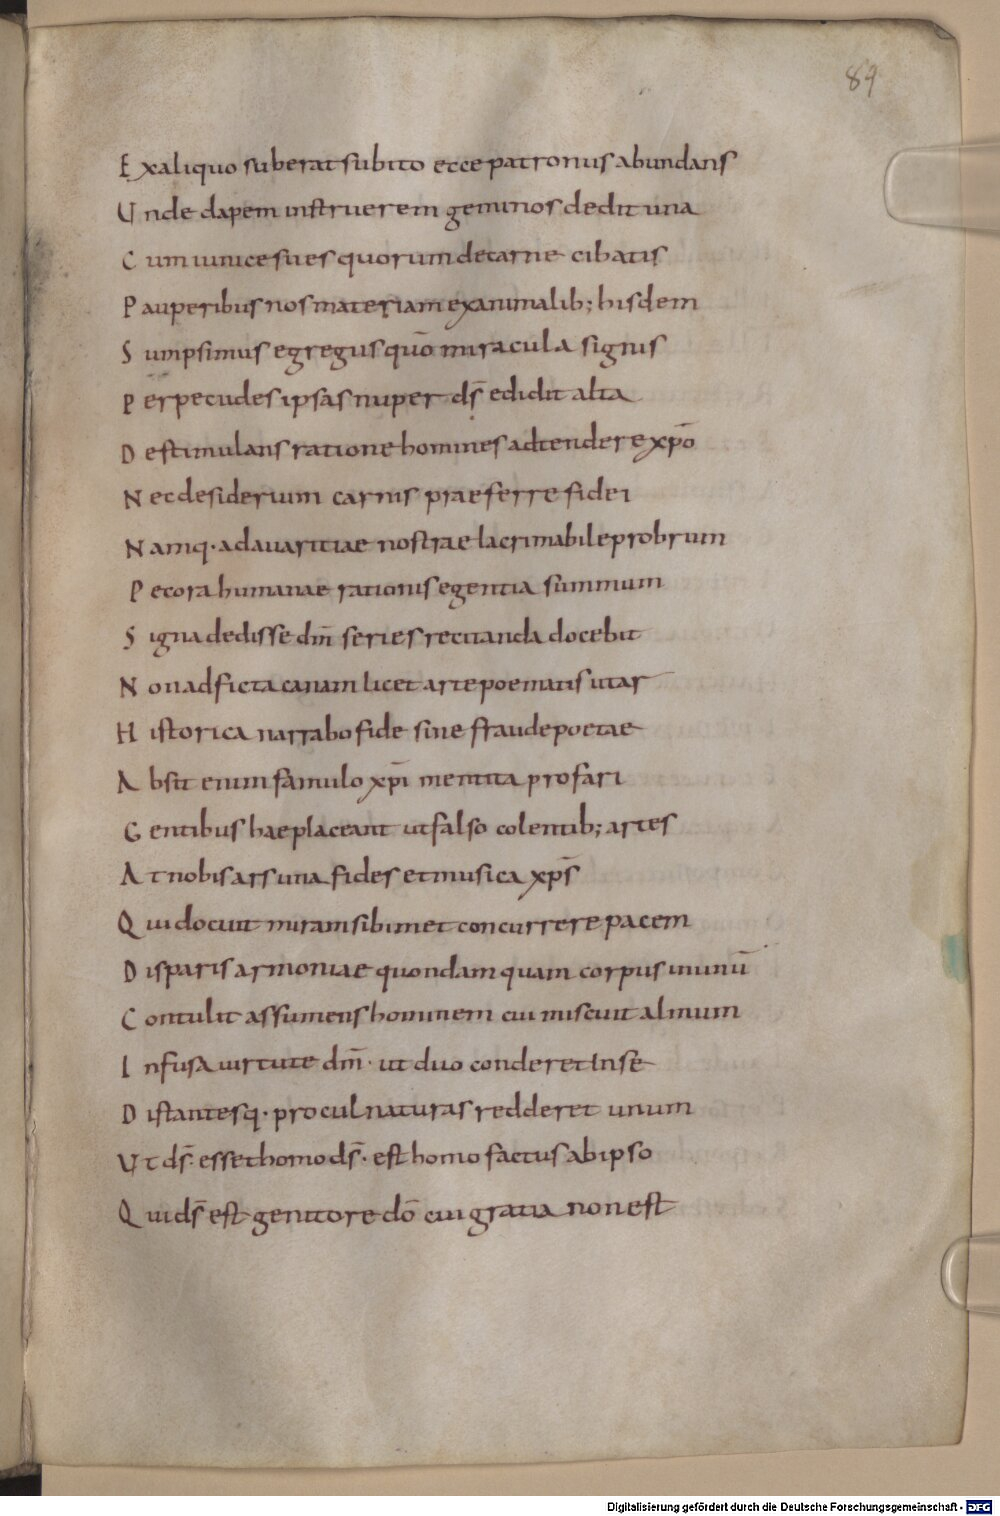 89
Exaliquo suberat subito ecce patronus abundans
Unde dapem instruerem geminos dedit una
Cum iunice sues quorum decarne cibatis
Pauperibus nos materiam exanimalib; hisdem
Sumpsimus egregiis quō miracula signis
Per pecudes ipsas nuper dſ̄ edidit alta
De stimulans ratione homines adtendere xp̄o
Nec desiderium carnis praeferre fidei
Namq· ad auaritiae nostrae lacrimabile probrum
Pecora humanae rationis egentia summum
Signa dedisse dm̄ series recitanda docebit
Non adficta canam licet arte poematis utar
Historica narrabo fide sine fraude poetae
Absit enim famulo xp̄i mentita profari
Gentibus hae placeant ut falso colentib; artes
At nobis ars una fides et musica xp̄s
Qui docuit miram sibimet concurrere pacem
Disparis armoniae quondam quam corpus inunū
Contulit assumens hominem cui miscuit almum
Infusa uirtute dm̄· ut duo conderet Inse
Distantesq· procul naturas redderet unum
Ut dſ̄· esset homo dſ̄· est homo factus abipso
Qui dſ̄ est genitore dō cui gratia non est
Digitalisierung gefördert durch die Deutsche Forschungsgemeinschaft - DFG